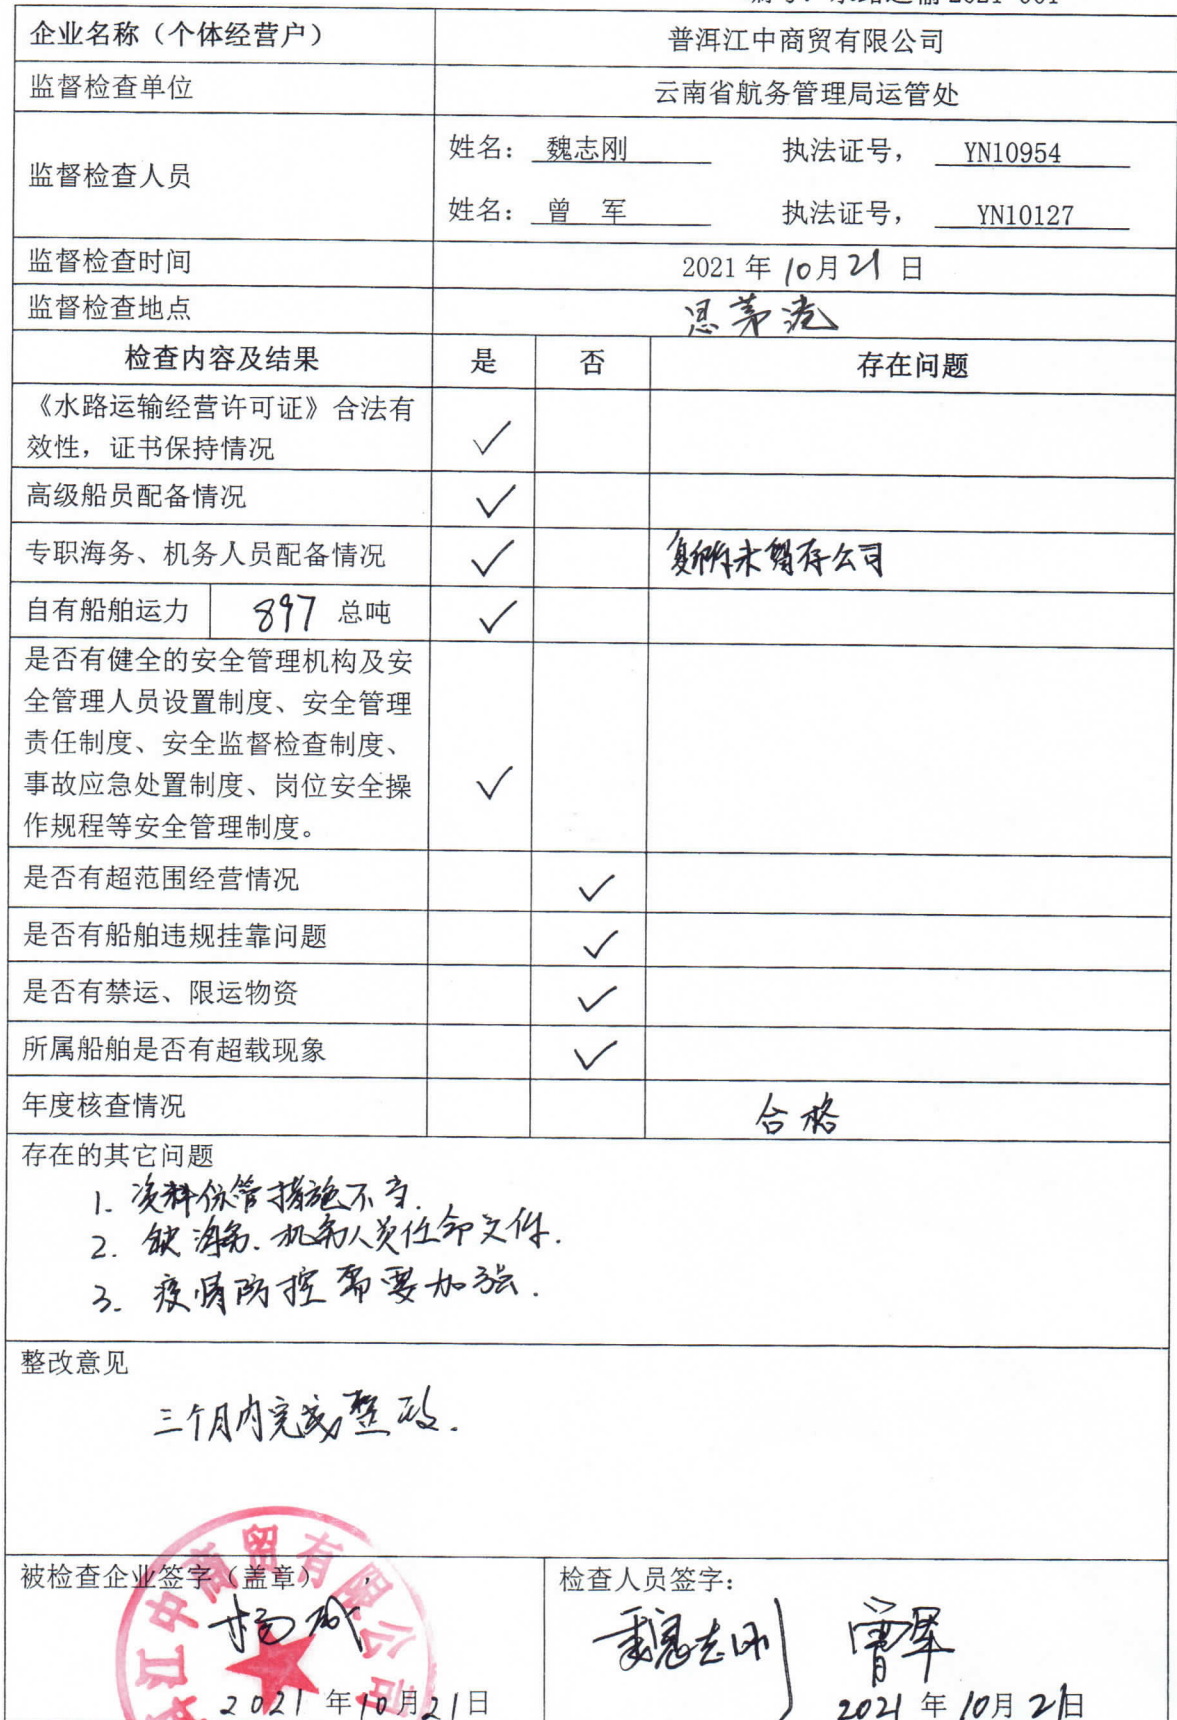 企业名称（个体经营户） 普洱江中商贸有限公司
监督检查单位 云南省航务管理局运管处
监督检查人员 姓名：魏志刚 执法证号，YN10954
姓名：曾 军 执法证号，YN10127
监督检查时间 2021年10月21日
监督检查地点 思茅港
检查内容及结果 是 否 存在问题
《水路运输经营许可证》合法有
效性，证书保持情况 ✓
高级船员配备情况 ✓
专职海务、机务人员配备情况 ✓ 未留存公司
自有船舶运力 897 总吨 ✓
是否有健全的安全管理机构及安
全管理人员设置制度、安全管理
责任制度、安全监督检查制度、
事故应急处置制度、岗位安全操 ✓
作规程等安全管理制度。
是否有超范围经营情况 ✓
是否有船舶违规挂靠问题 ✓
是否有禁运、限运物资 ✓
所属船舶是否有超载现象 ✓
年度核查情况 合格
存在的其它问题
1. 资料保管措施不当.
2. 缺海务.机务人员任命文件.
3. 疫情防控需要加强.
整改意见
三个月内完成整改.
被检查企业签字（盖章） 检查人员签字：
江中商贸有限公司
杨 魏志刚 曾军
2021年10月21日 2021年10月21日